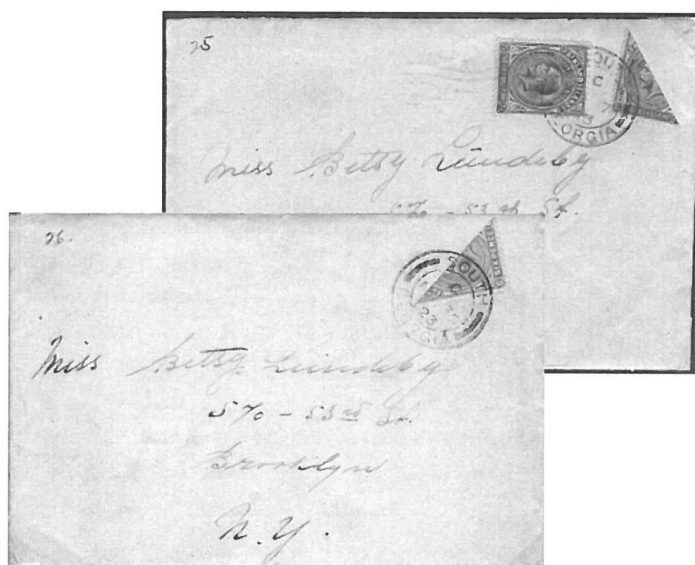 25
SOUTH
C
23
GEORGIA
Miss Betsy Lündeby
570 - 53rd St.
26.
SOUTH
C
23
GEORGIA
Miss Betsy Lündeby
570 - 53rd St.
Brooklyn
N.Y.